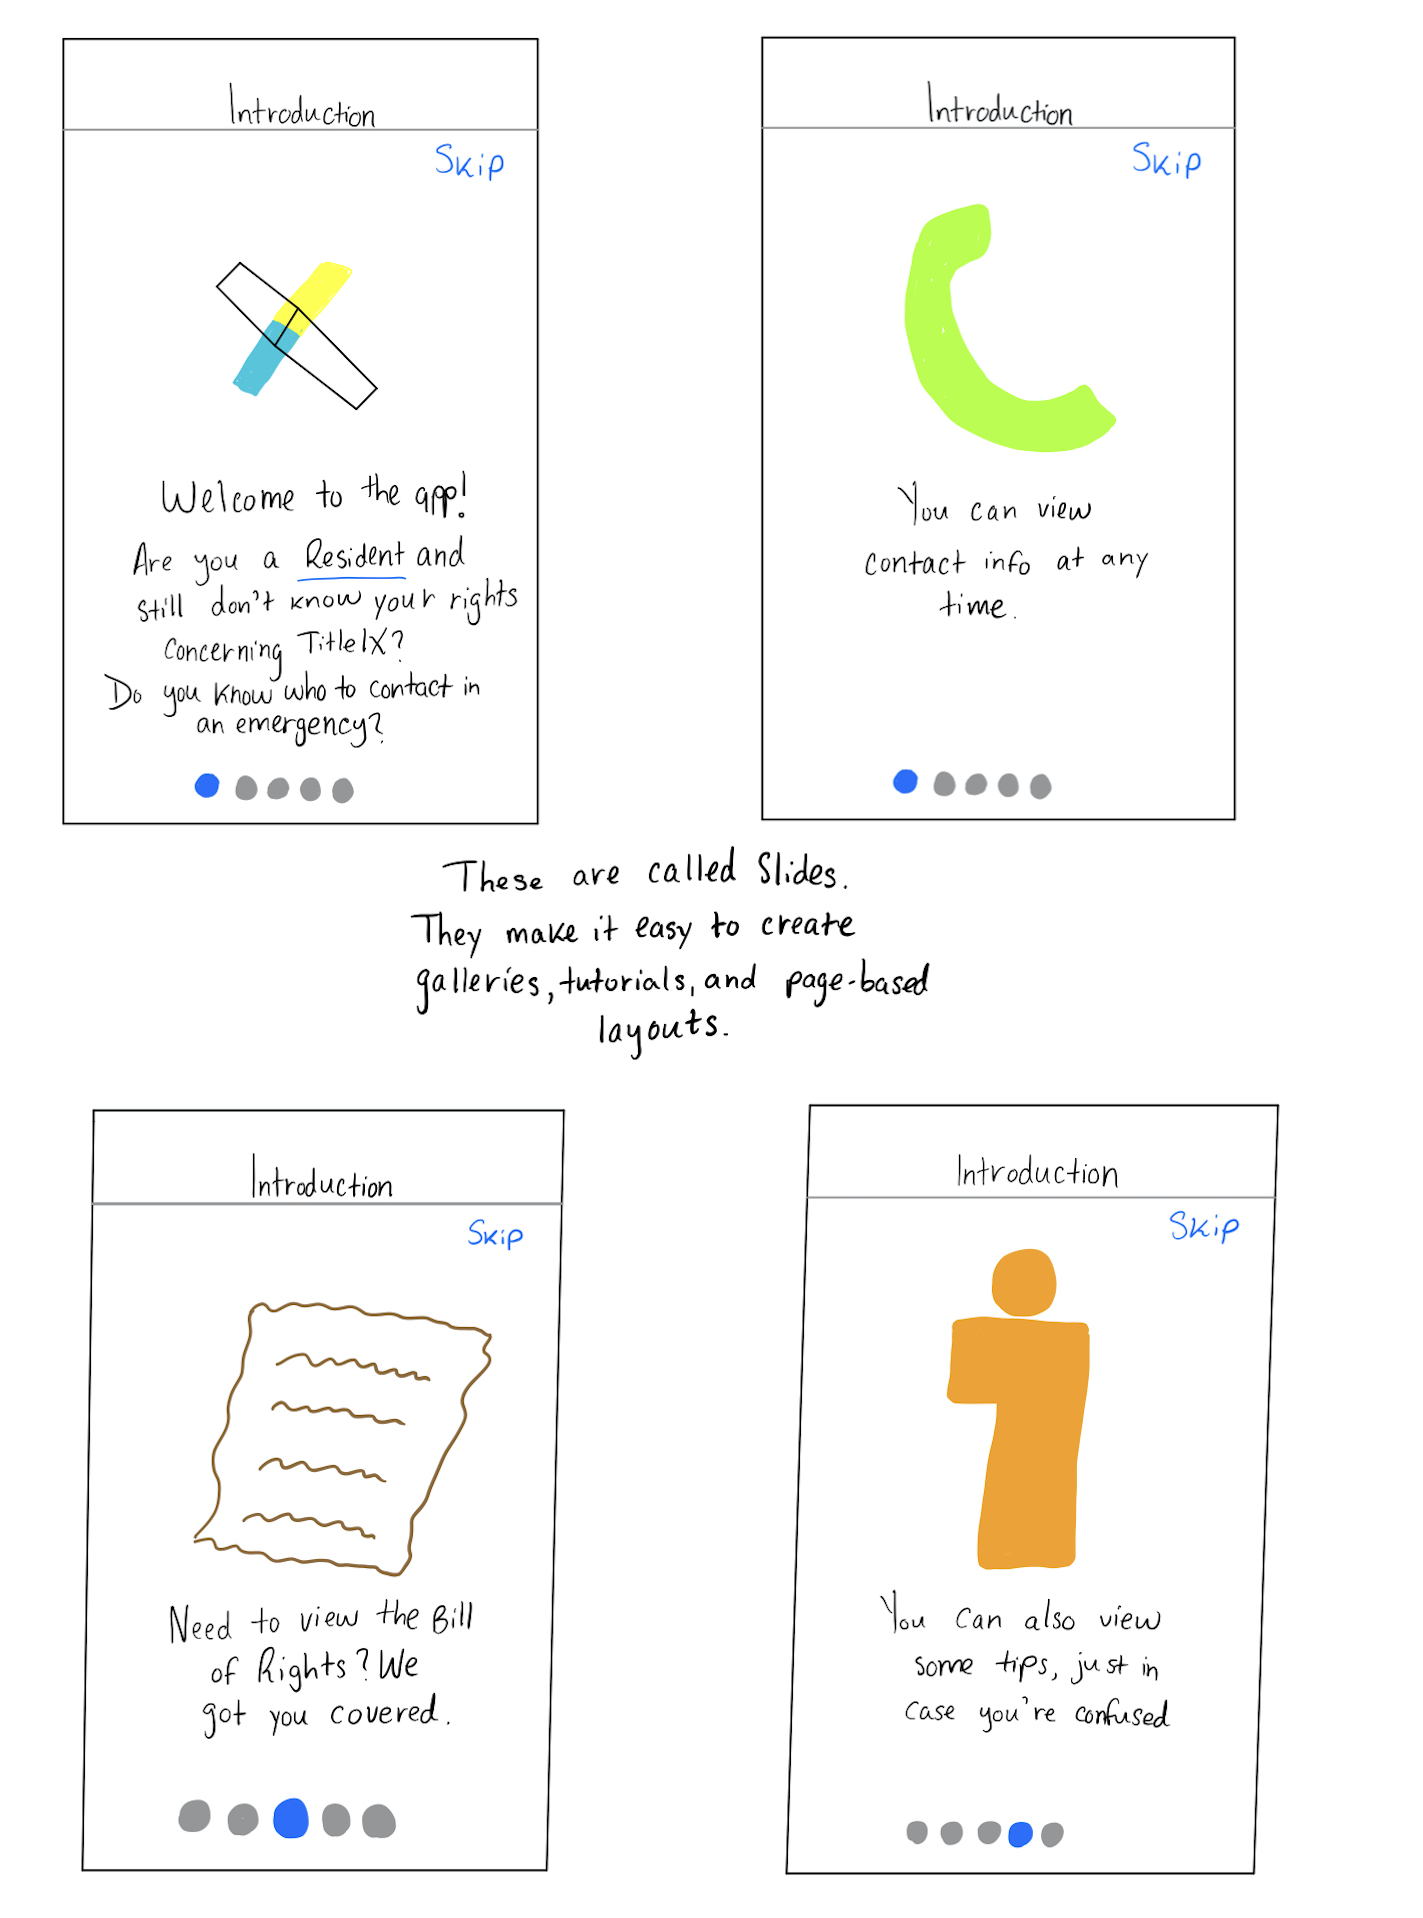 Introduction
Skip
Welcome to the app!
Are you a Resident and
still don't know your rights
concerning TitleIX?
Do you know who to contact in
an emergency?
Introduction
Skip
You can view
contact info at any
time.
These are called Slides.
They make it easy to create
galleries, tutorials, and page-based
layouts.
Introduction
Skip
Need to view the Bill
of Rights? We
got you covered.
Introduction
Skip
You can also view
some tips, just in
case you're confused